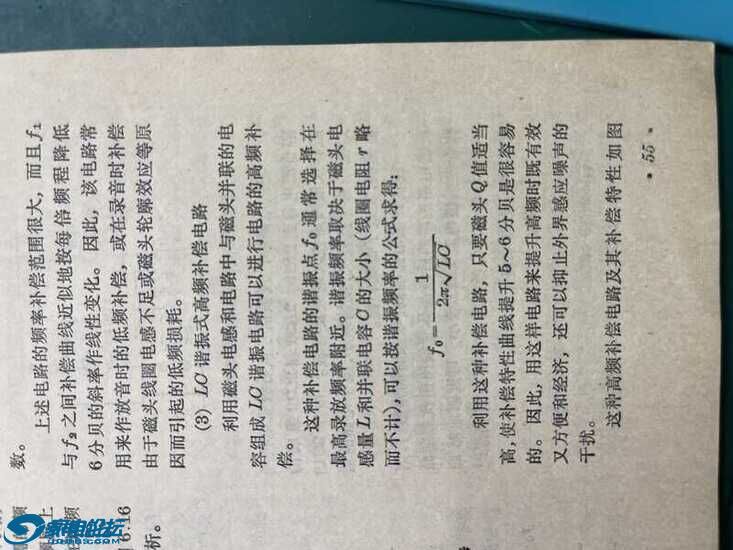 数。
上述电路的频率补偿范围很大，而且 f₁
与 f₂ 之间补偿曲线近似地按每倍频程降低
6 分贝的斜率作线性变化。因此，该电路常
用来作放音时的低频补偿，或在录音时补偿
由于磁头线圈电感不足或磁头轮廓效应等原
因而引起的低频损耗。
(3) LC 谐振式高频补偿电路
利用磁头电感和电路中与磁头并联的电
容组成 LC 谐振电路可以进行电路的高频补
偿。
这种补偿电路的谐振点 f₀ 通常选择在
最高录放频率附近。谐振频率取决于磁头电
感量 L 和并联电容 C 的大小（线圈电阻 r 略
而不计），可以按谐振频率的公式求得：
f₀ = 1/(2π√LC)
利用这种补偿电路，只要磁头 Q 值适当
高，使补偿特性曲线提升 5～6 分贝是很容易
的。因此，用这样电路来提升高频时既有效
又方便和经济，还可以抑止外界感应噪声的
干扰。
这种高频补偿电路及其补偿特性如图
• 55 •
频
上
频
6.16
析。
家电论坛